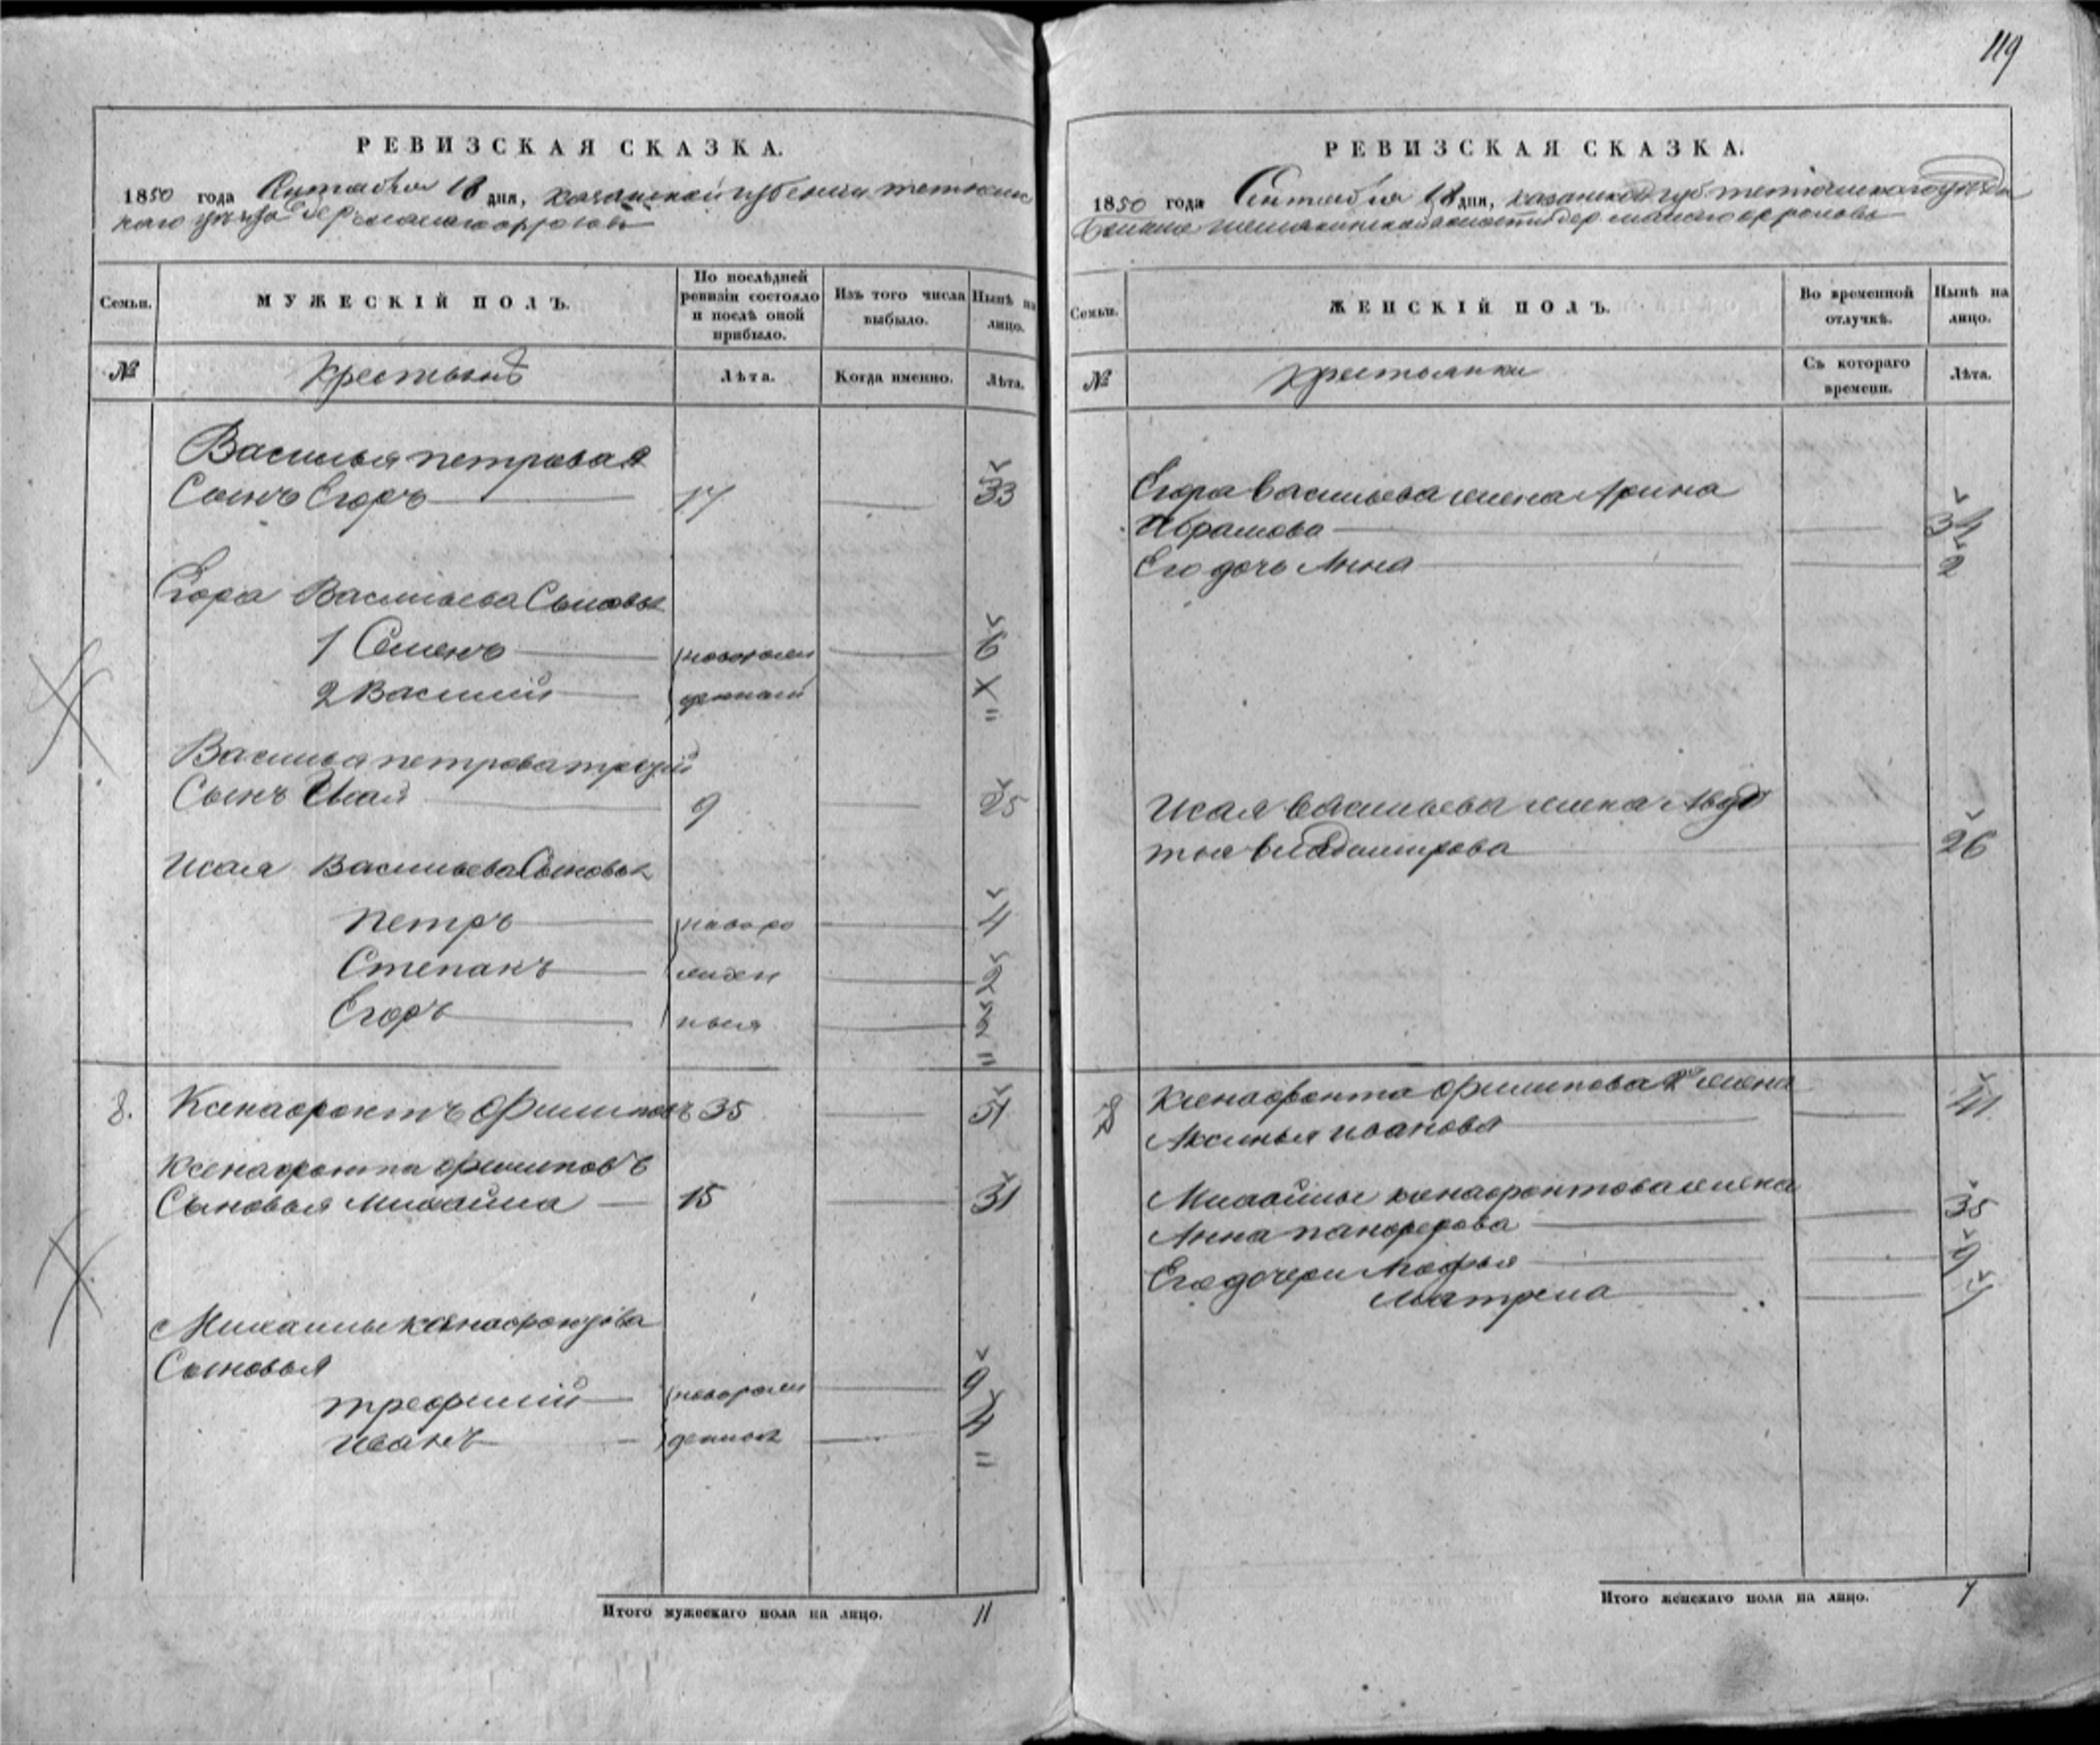 119
РЕВИЗСКАЯ СКАЗКА.
1850 года Сентября 18 дня, казанской губернии тетюшс
каго уѣзда дер
Семьи.
МУЖЕСКІЙ ПОЛЪ.
По послѣдней ревизіи состояло и послѣ оной прибыло.
Изъ того числа выбыло.
Нынѣ на лицо.
№
Крестьянъ
Лѣта.
Когда именно.
Лѣта.
Василья петрова
Сынъ Егоръ 17 33
Егора Васильева Сыновья
1 Семенъ новорож 6
2 Василий денныи
Василья петрова третий
Сынъ Исай 9 25
Исая Васильева Сыновья
Петръ новоро 4
Степанъ жден 2
Егоръ ныя
8. Ксенафонтъ Филиповъ 35 51
Ксенафонта филиповъ
Сыновья Михайла 15 31
Михаилы ксенафонтова
Сыновья
трефилий новорож 9
Иванъ денныя 4
Итого мужескаго пола на лицо. 11
РЕВИЗСКАЯ СКАЗКА.
1850 года Сентября 18 дня, казанской губ тетюшскаго уѣзда
волости дер
Семьи.
ЖЕНСКІЙ ПОЛЪ.
Во временной отлучкѣ.
Нынѣ на лицо.
№
Крестьянки
Съ котораго времени.
Лѣта.
Егора Васильева жена Арина
Абрамова 34
Его дочь Анна 2
Исая Васильева жена Авдо
тья Владимирова 26
8 Ксенафонта филипова 2я жена
Аксинья иванова 41
Михайлы ксенафонтова жена
Анна панферова 35
Его дочери Мафья 9
Матрена
Итого женскаго пола на лицо. 7